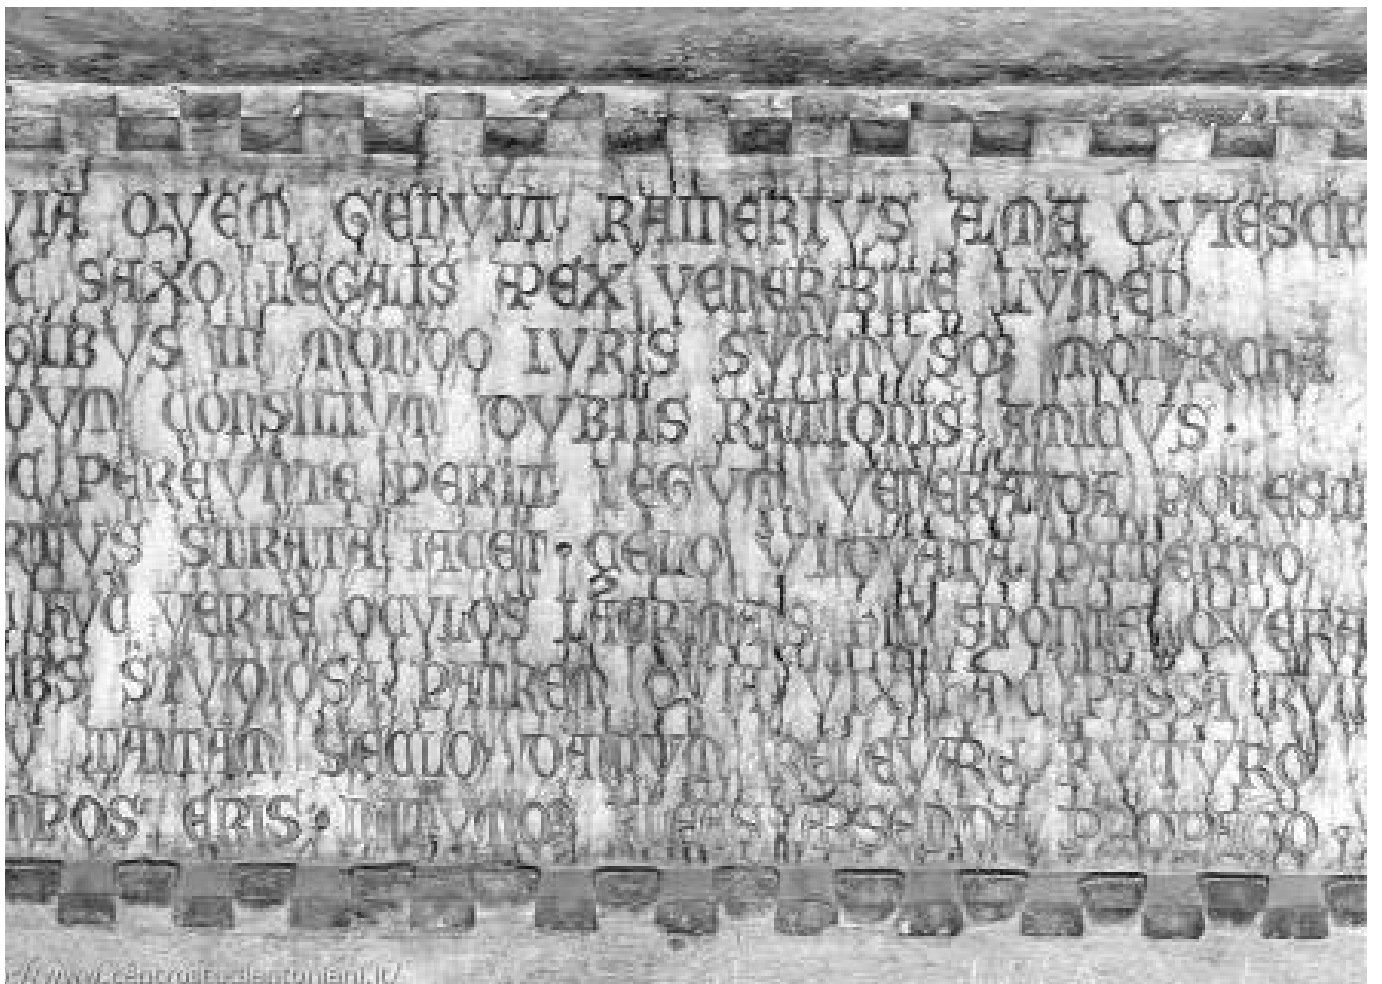 VIA QVEM GENVIT RAINERIVS ALMA QVIESCE
C SAXO LEGALIS APEX VENERABILE LVMEN
GIBVS IN MONDO IVRIS SVMMVSQ MONARCHA
DVM CONSILIVM DVBIIS RATIONIS AMICVS
C PEREVNTE PERIT LEGVM VENERANDA POTEST
RTVS STRATA IACET CELO VIDVATA PATERNO
HVC VERTE OCVLOS LACRIMAS SPONTE
VRBS STVDIOSA PATREM QVIA VIX HAC PASSA
TANTAM SECLO DAMPVM RELEVARE FVTVRO
MPOS ERIS